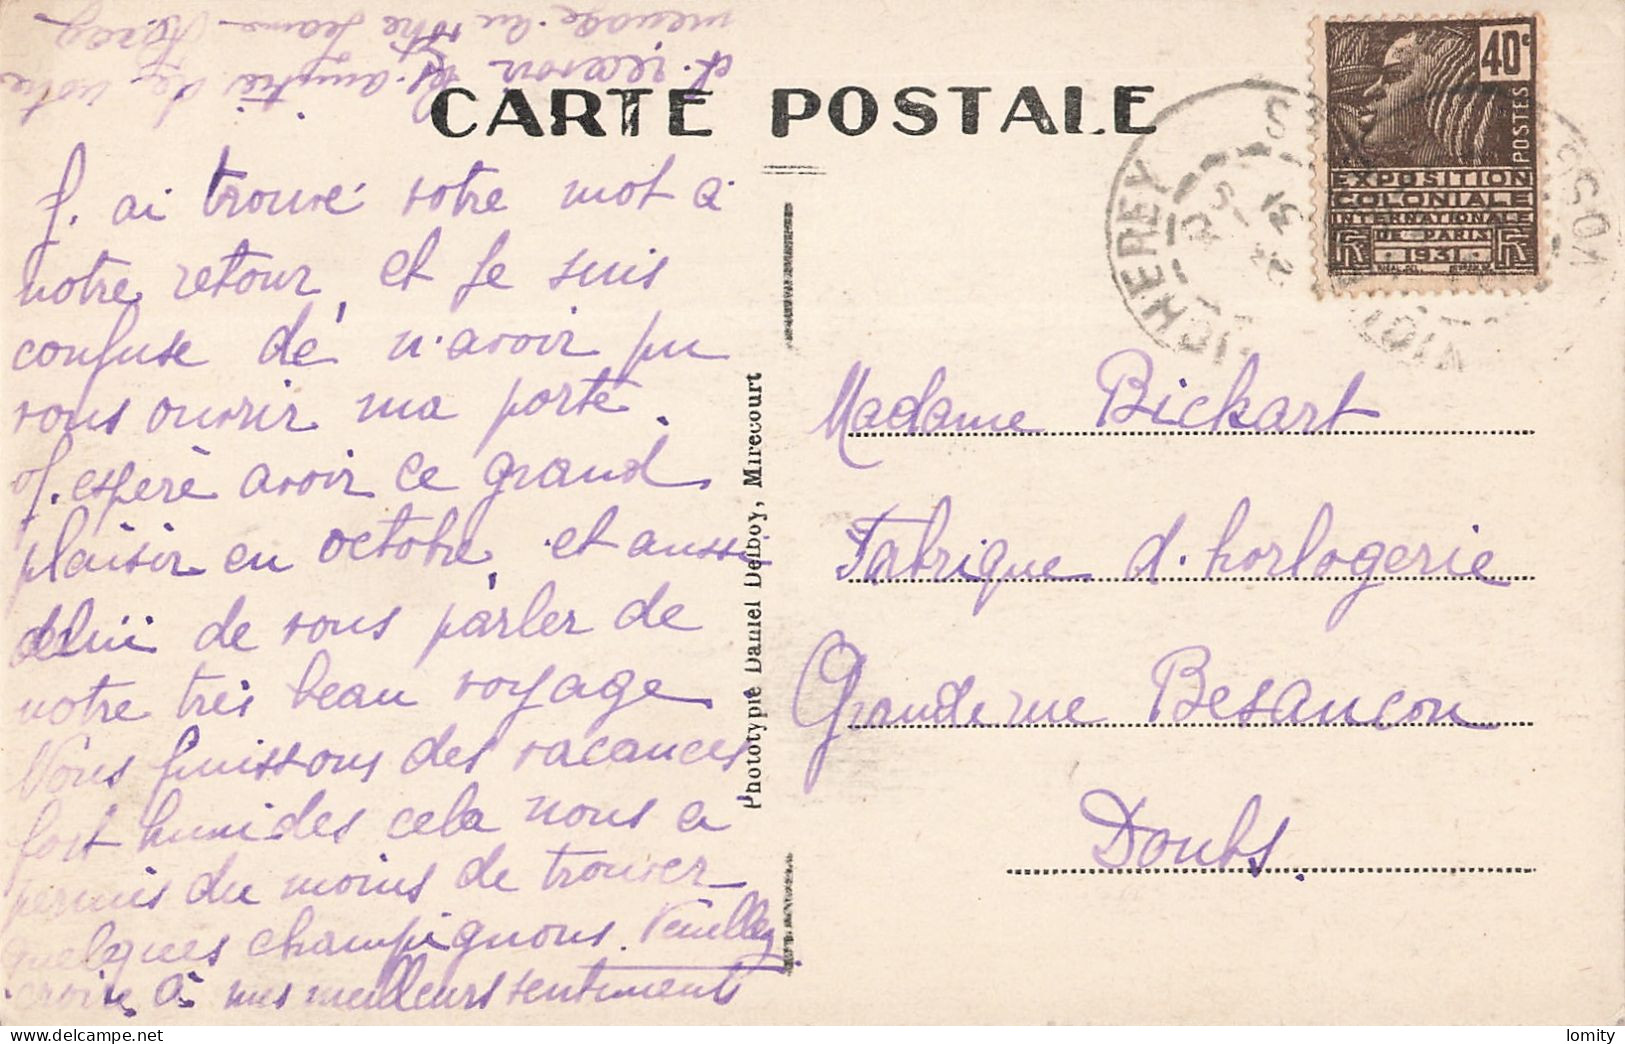 CARTE POSTALE
J'ai trouvé votre mot à
notre retour, et je suis
confuse de n'avoir pu
vous ouvrir ma porte.
J'espère avoir ce grand
plaisir en octobre, et aussi
celui de vous parler de
notre très beau voyage
Nous finissons des vacances
fort humides cela nous a
permis du moins de trouver
quelques champignons. Veuillez
croire à mes meilleurs sentiments
et amitié de notre
ménage au vôtre Jeanne
Phototypie Daniel Delboy, Mirecourt
40c
POSTES
EXPOSITION
COLONIALE
INTERNATIONALE
DE PARIS
1931
Madame Bickart
Fabrique d'horlogerie
Grande rue Besançon
Doubs.
lomity